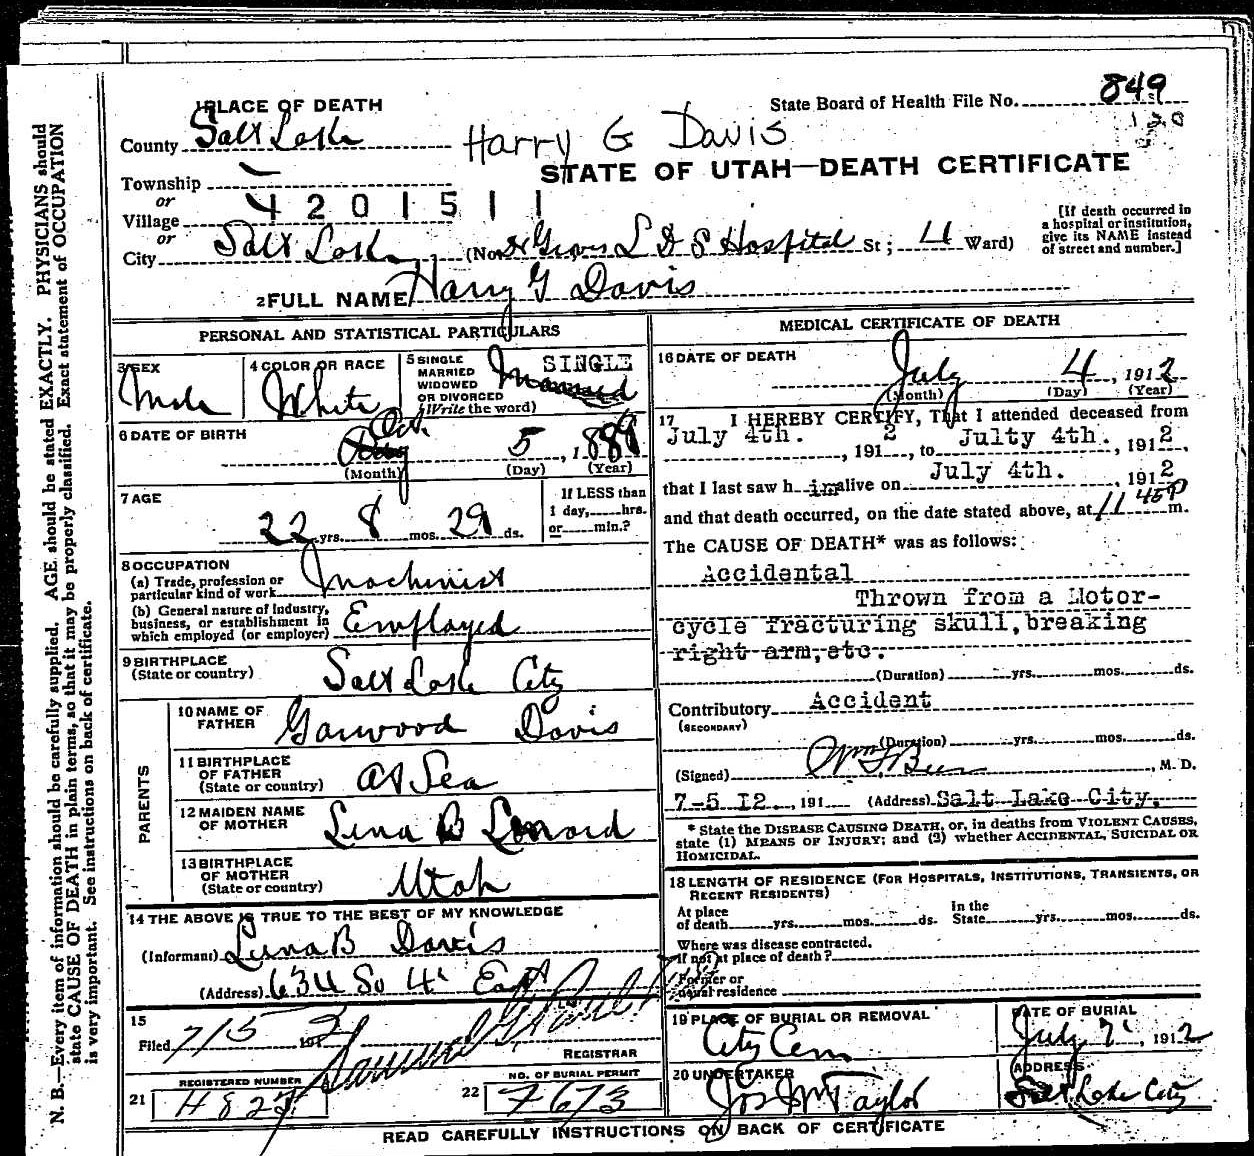 N. B.—Every item of information should be carefully supplied. AGE should be stated EXACTLY. PHYSICIANS should
state CAUSE OF DEATH in plain terms, so that it may be properly classified. Exact statement of OCCUPATION
is very important. See instructions on back of certificate.
1 PLACE OF DEATH
State Board of Health File No. 849
County Salt Lake
Harry G Davis
STATE OF UTAH—DEATH CERTIFICATE
Township
or
Village
4 2 0 1 5 1 1
or
City Salt Lake (No. L D S Hospital St; 4 Ward)
[If death occurred in
a hospital or institution,
give its NAME instead
of street and number.]
2 FULL NAME Harry G Davis
PERSONAL AND STATISTICAL PARTICULARS
3 SEX
Male
4 COLOR OR RACE
White
5 SINGLE
MARRIED
WIDOWED
OR DIVORCED
(Write the word)
SINGLE
6 DATE OF BIRTH
Oct. 5, 1889
(Month) (Day) (Year)
7 AGE
22 yrs. 8 mos. 29 ds.
If LESS than
1 day, hrs.
or min.?
8 OCCUPATION
(a) Trade, profession or
particular kind of work Machinist
(b) General nature of Industry,
business, or establishment in
which employed (or employer) Employed
9 BIRTHPLACE
(State or country)
Salt Lake City
PARENTS
10 NAME OF
FATHER
Garwood Davis
11 BIRTHPLACE
OF FATHER
(State or country)
At Sea
12 MAIDEN NAME
OF MOTHER
Lena B Lenoard
13 BIRTHPLACE
OF MOTHER
(State or country)
Utah
14 THE ABOVE IS TRUE TO THE BEST OF MY KNOWLEDGE
(Informant) Lena B Davis
(Address) 634 So 4' East
15
Filed 7/5 191 2
REGISTRAR
REGISTERED NUMBER
21 H 827
NO. OF BURIAL PERMIT
22 7673
MEDICAL CERTIFICATE OF DEATH
16 DATE OF DEATH
July 4, 1912
(Month) (Day) (Year)
17 I HEREBY CERTIFY, That I attended deceased from
July 4th. , 191 2, to Julty 4th. , 191 2,
that I last saw h im alive on July 4th. 191 2
and that death occurred, on the date stated above, at 11 45P m.
The CAUSE OF DEATH* was as follows:
Accidental
Thrown from a Motor-
cycle fracturing skull, breaking
right arm, etc.
(Duration) yrs. mos. ds.
Contributory Accident
(SECONDARY)
(Duration) yrs. mos. ds.
(Signed) , M. D.
7-5 12 , 191 (Address) Salt Lake City.
* State the DISEASE CAUSING DEATH, or, in deaths from VIOLENT CAUSES,
state (1) MEANS OF INJURY; and (2) whether ACCIDENTAL, SUICIDAL OR
HOMICIDAL.
18 LENGTH OF RESIDENCE (FOR HOSPITALS, INSTITUTIONS, TRANSIENTS, OR
RECENT RESIDENTS)
At place
of death yrs. mos. ds.
In the
State yrs. mos. ds.
Where was disease contracted.
if not at place of death?
Former or
usual residence
19 PLACE OF BURIAL OR REMOVAL
City Cem
DATE OF BURIAL
July 7', 1912
20 UNDERTAKER
Jos Wm Taylor
ADDRESS
Salt Lake City
READ CAREFULLY INSTRUCTIONS ON BACK OF CERTIFICATE